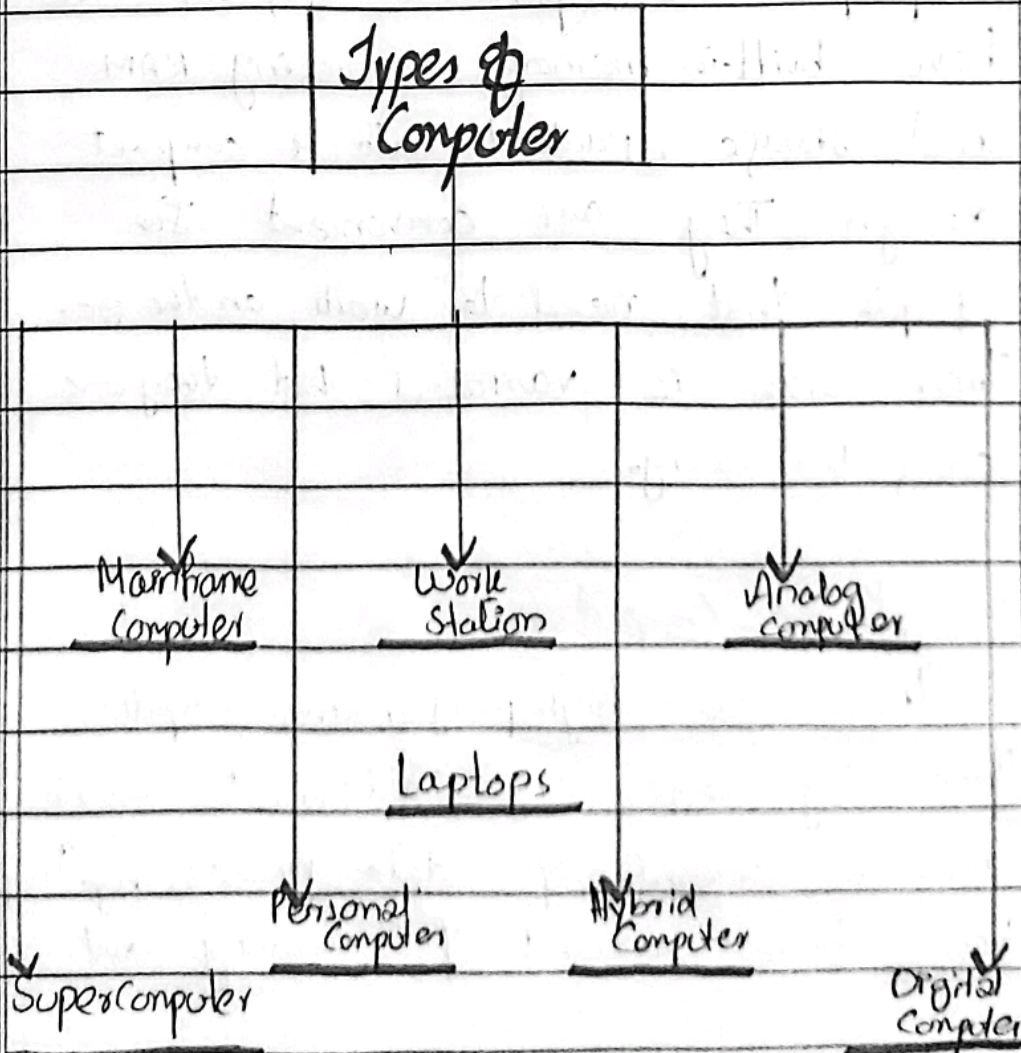 Types of
Computer
Mainframe
Computer
Work
Station
Analog
Computer
Laptops
Personal
Computer
Hybrid
Computer
SuperComputer
Digital
Computer